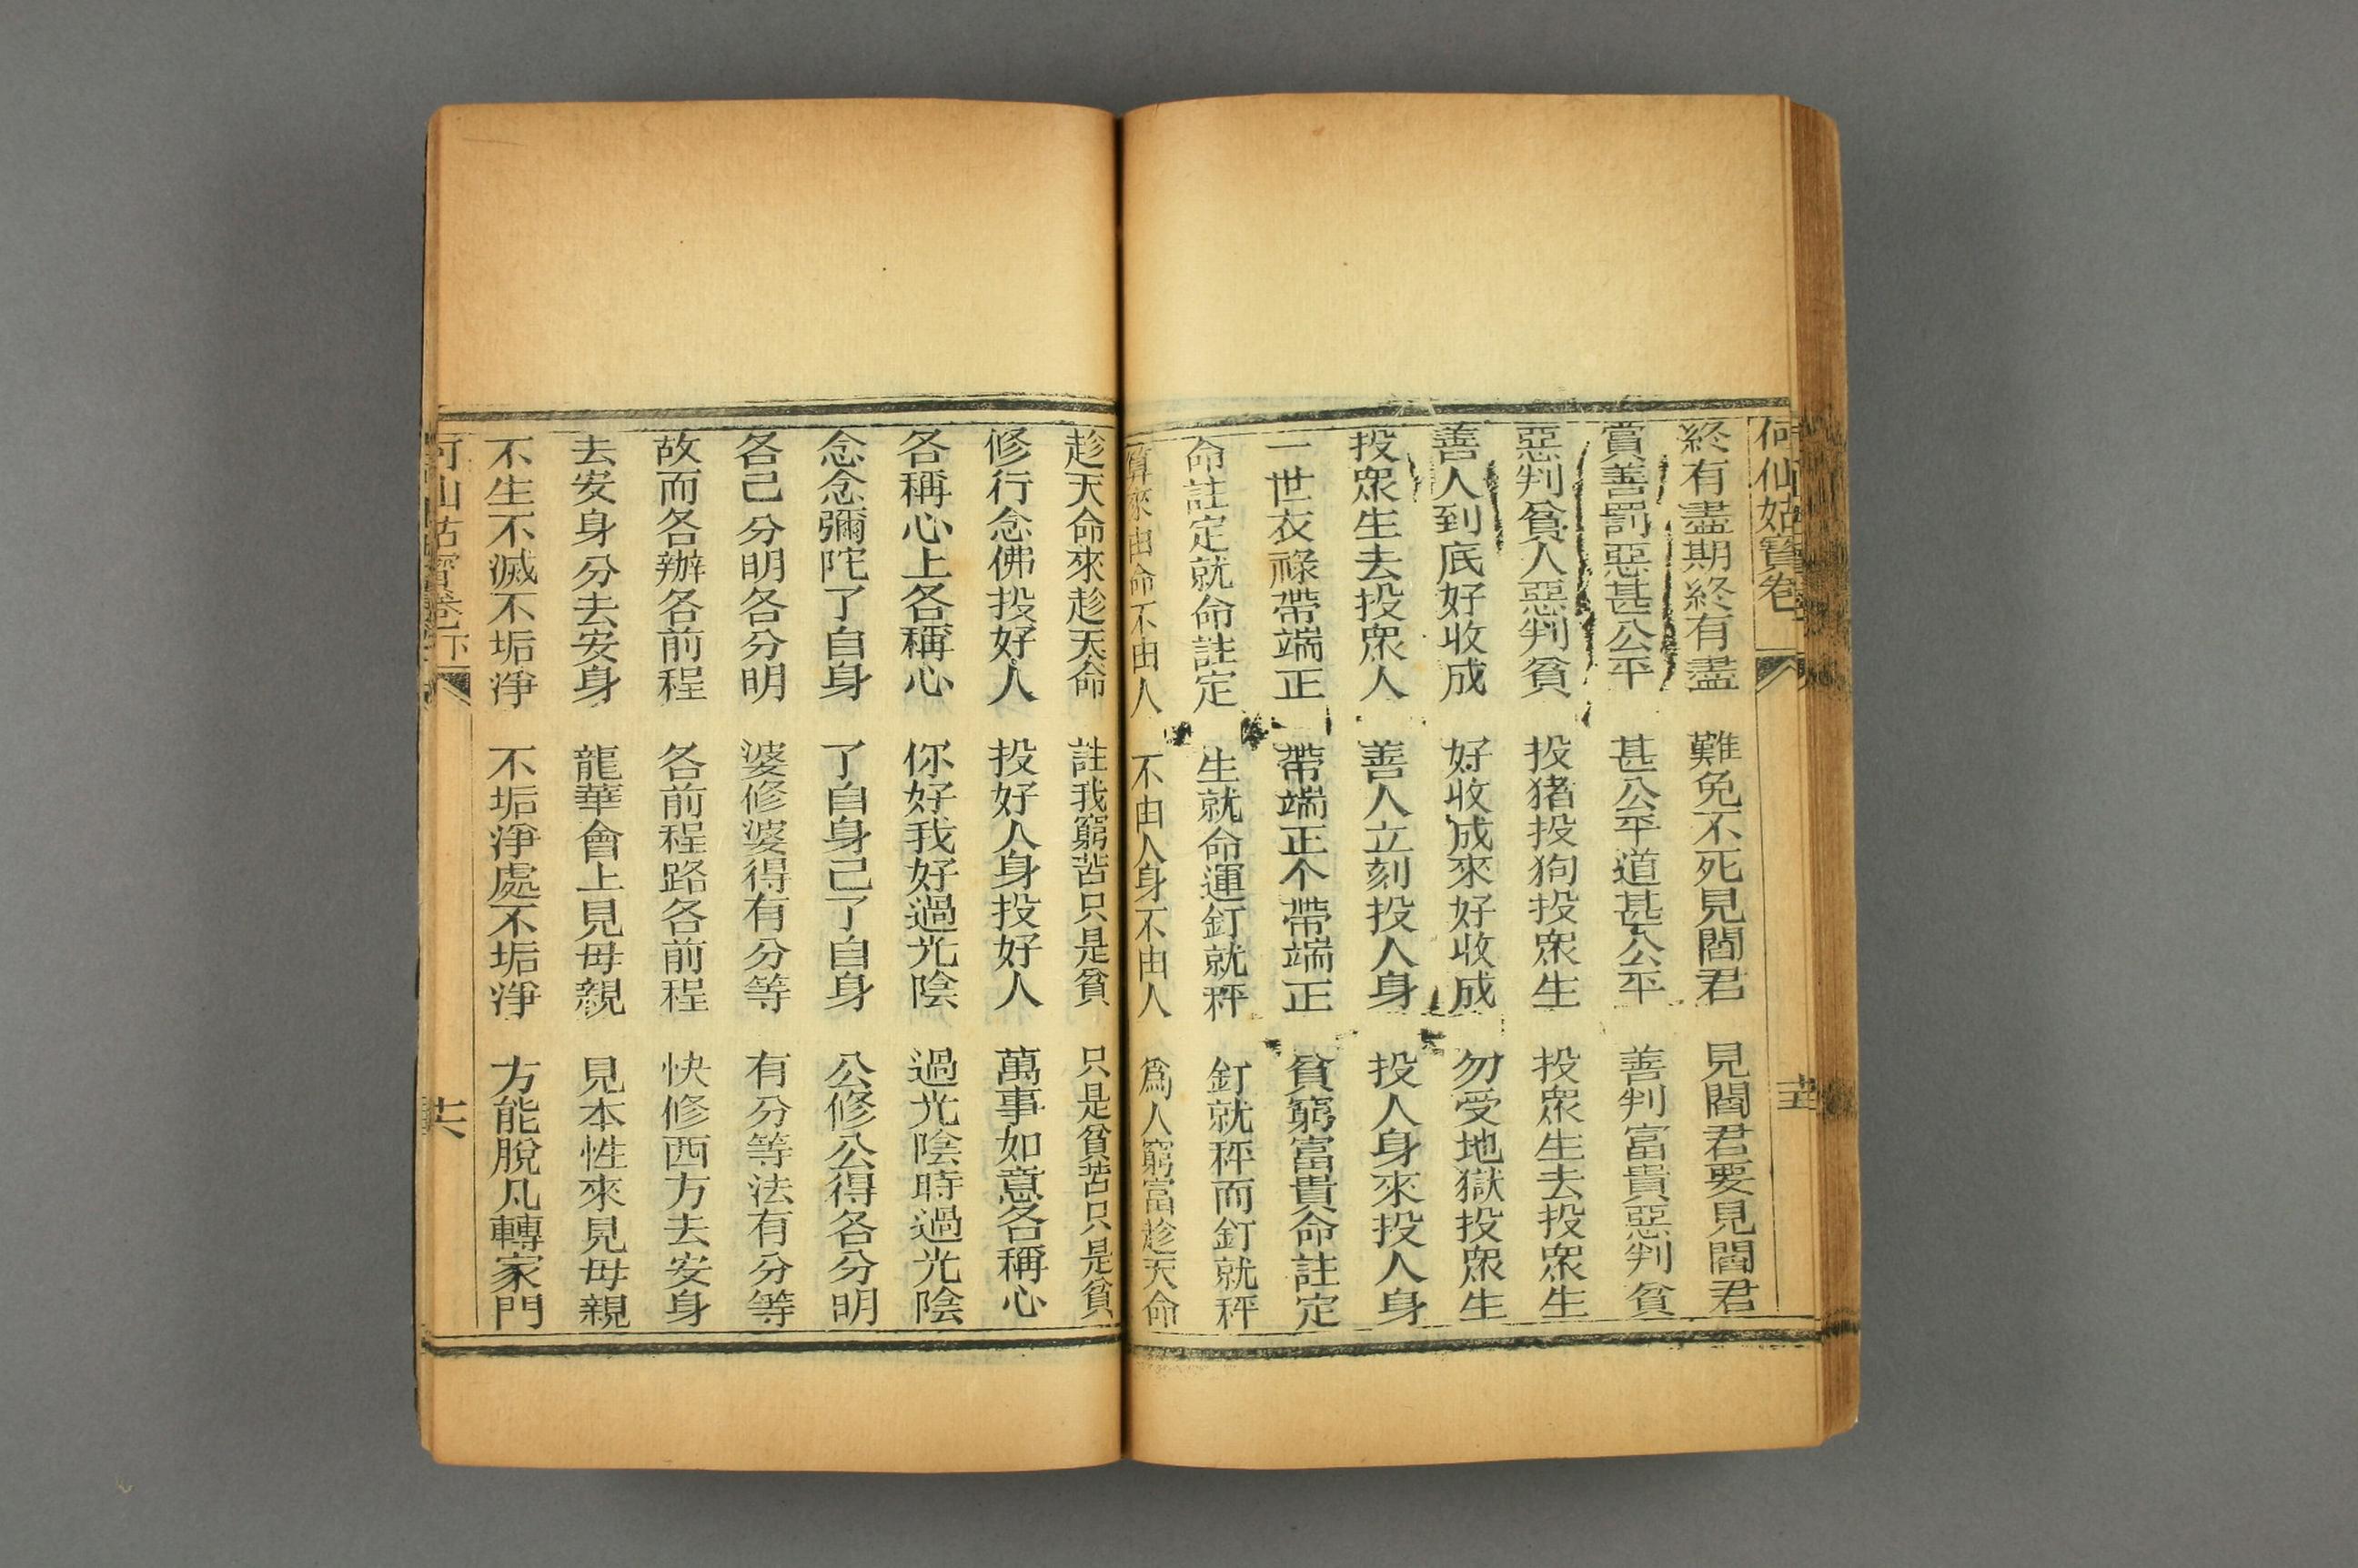 何仙姑寶卷
十五
終有盡期終有盡　難免不死見閻君　見閻君要見閻君
賞善罰惡甚公平　甚公平道甚公平　善判富貴惡判貧
惡判貧人惡判貧　投猪投狗投衆生　投衆生去投衆生
善人到底好收成　好收成來好收成　勿受地獄投衆生
投衆生去投衆人　善人立刻投人身　投人身來投人身
一世衣祿帶端正　帶端正个帶端正　貧窮富貴命註定
命註定就命註定　生就命運釘就秤　釘就秤而釘就秤
算來由命不由人　不由人身不由人　爲人窮富趁天命
趁天命來趁天命　註我窮苦只是貧　只是貧苦只是貧
修行念佛投好人　投好人身投好人　萬事如意各稱心
各稱心上各稱心　你好我好過光陰　過光陰時過光陰
念念彌陀了自身　了自身己了自身　公修公得各分明
各己分明各分明　婆修婆得有分等　有分等法有分等
故而各辦各前程　各前程路各前程　快修西方去安身
去安身分去安身　龍華會上見母親　見本性來見母親
不生不滅不垢淨　不垢淨處不垢淨　方能脫凡轉家門
何仙姑寶卷下
十六